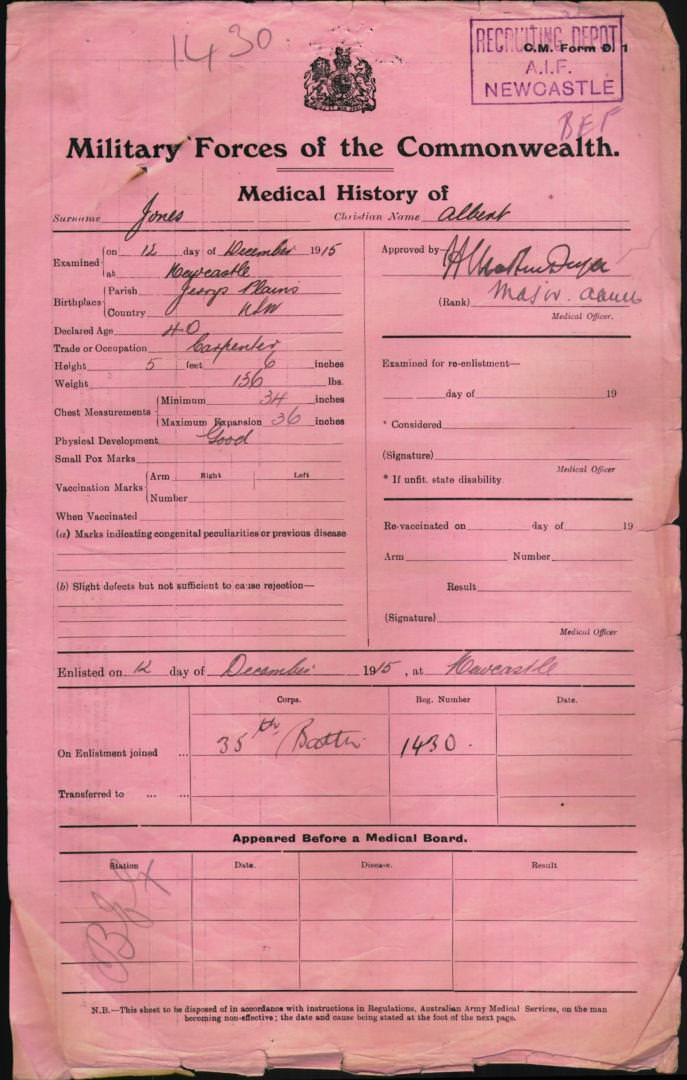 1430.
RECRUITING DEPOT
A.I.F.
NEWCASTLE
C.M. Form D. 1
BEF
Military Forces of the Commonwealth.
Medical History of
Surname Jones Christian Name Albert
Examined on 12 day of December 1915
at Newcastle
Birthplace Parish Georges Plains
Country NSW
Declared Age 40
Trade or Occupation Carpenter
Height 5 feet 6 inches
Weight 136 lbs.
Chest Measurements Minimum 34 inches
Maximum Expansion 36 inches
Physical Development Good
Small Pox Marks
Vaccination Marks Arm Right Left
Number
When Vaccinated
(a) Marks indicating congenital peculiarities or previous disease
(b) Slight defects but not sufficient to cause rejection—
Approved by
(Rank) Major. aamc
Medical Officer.
Examined for re-enlistment—
day of 19
* Considered
(Signature)
Medical Officer
* If unfit. state disability
Re-vaccinated on day of 19
Arm Number
Result
(Signature)
Medical Officer
Enlisted on 12 day of December 1915, at Newcastle
Corps. Reg. Number Date.
On Enlistment joined ... 35th Battn 1430.
Transferred to ... ...
Appeared Before a Medical Board.
Station Date. Disease. Result
N.B.—This sheet to be disposed of in accordance with instructions in Regulations, Australian Army Medical Services, on the man
becoming non-effective; the date and cause being stated at the foot of the next page.